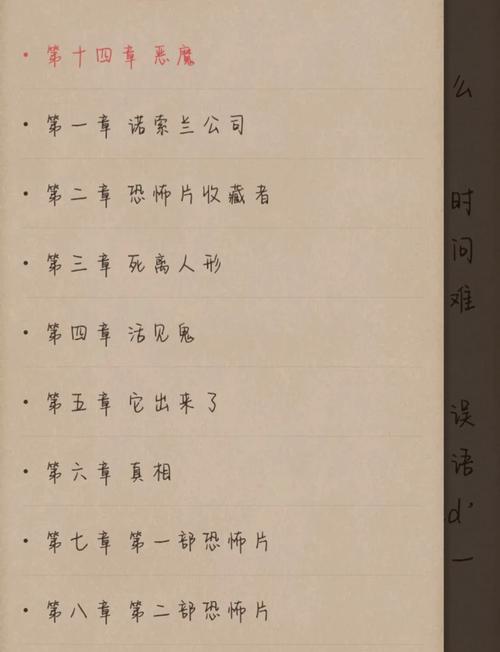 第十四章 恶魔
第一章 诺索兰公司
第二章 恐怖片收藏者
第三章 死离人形
第四章 活见鬼
第五章 它出来了
第六章 真相
第七章 第一部恐怖片
第八章 第二部恐怖片
么
时
问
难
误
语
d'
一